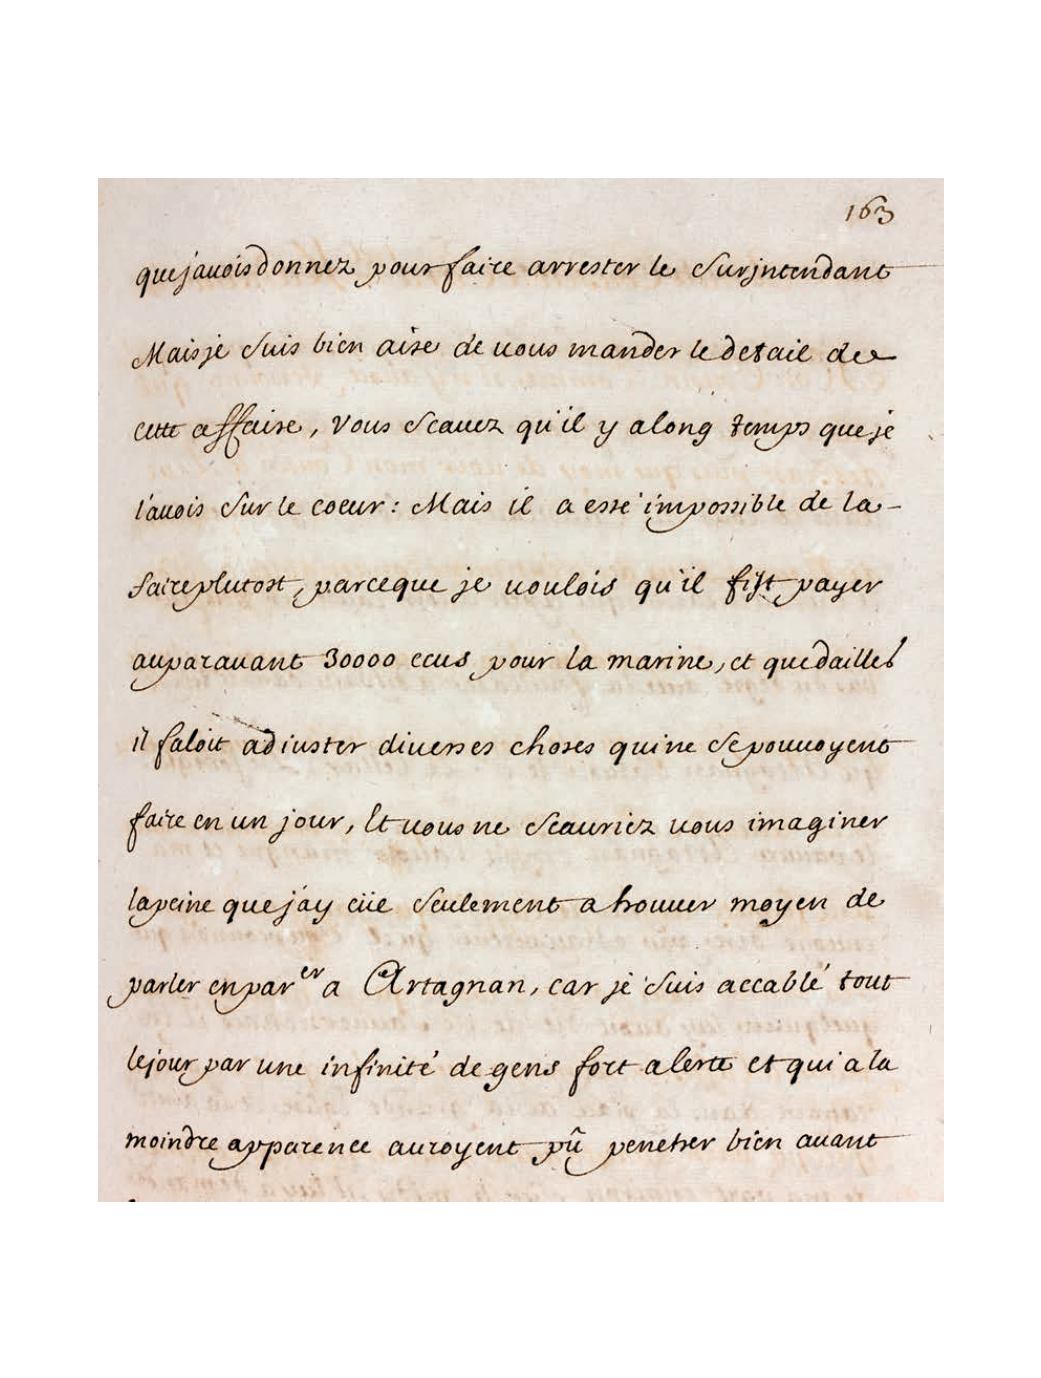 163
que j'auois donnez pour faire arrester le Surjntendant
Mais je suis bien aise de vous mander le detail de
cette affaire, Vous scauez qu'il y a long temps que je
l'auois sur le coeur: Mais il a esté impossible de la
faire plutost, parceque je voulois qu'il fist payer
auparauant 30000 ecus pour la marine, et que dailleŕs
il faloit adiuster diuerses choses qui ne se pouuoyent
faire en un jour, Et vous ne scauriez vous imaginer
la peine que j'ay eüe seulement a trouuer moyen de
parler en par^er a Artagnan, car je suis accablé tout
le jour par une infinité de gens fort alerte et qui a la
moindre apparence auroyent pû penetrer bien auant